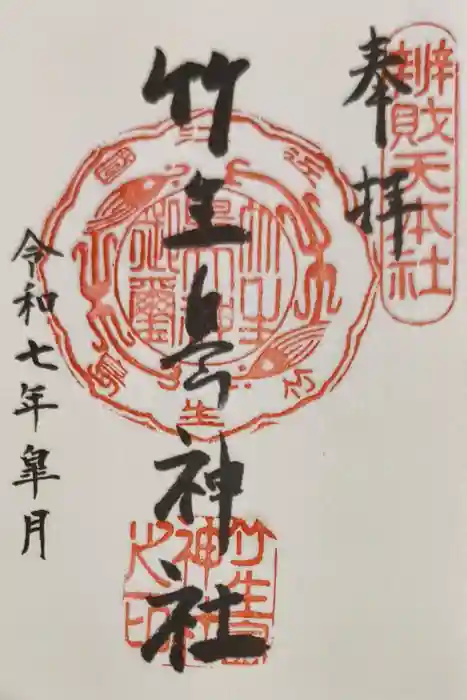 奉拝
辨財天本社
竹生島神社
竹生島
神社
之印
令和七年皐月